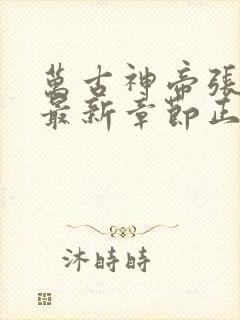 萬古神帝張
最新章節正
沐時時